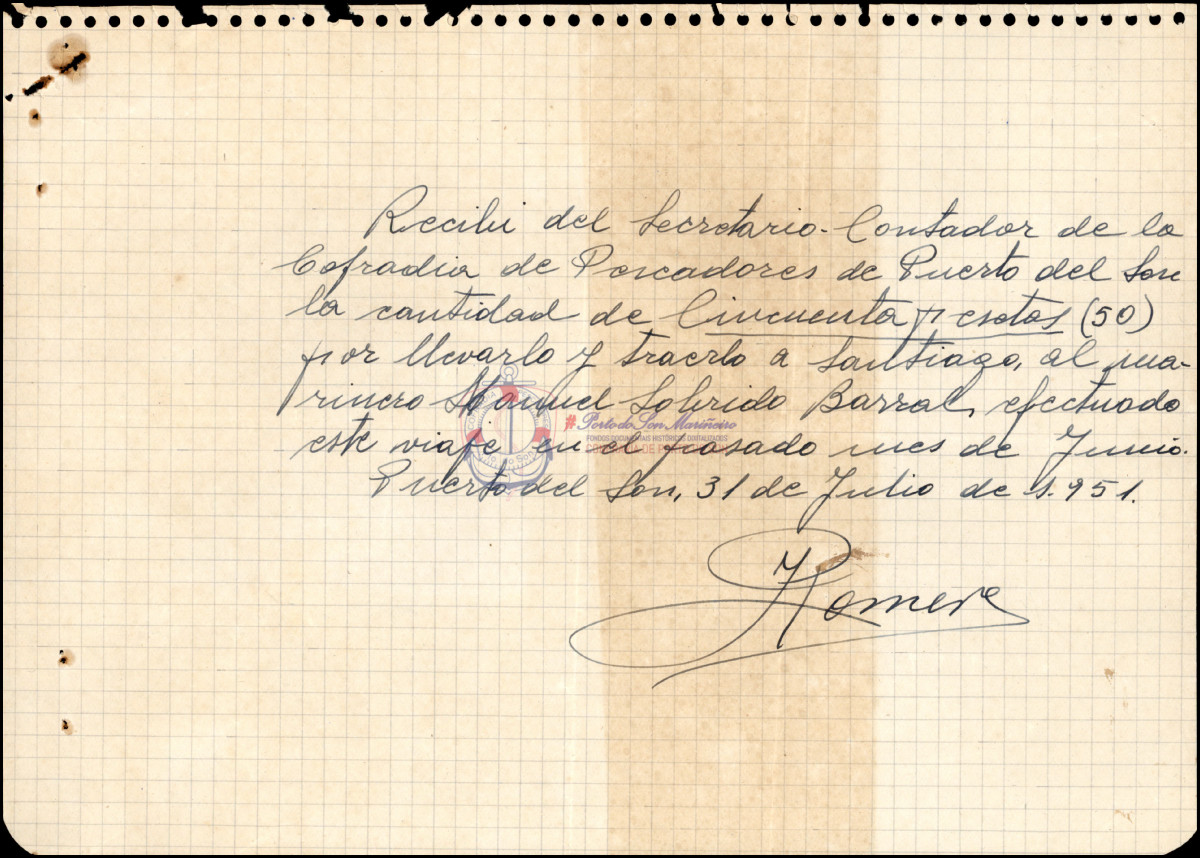 Recibi del Secretario-Contador de la
Cofradia de Pescadores de Puerto del Son
la cantidad de Cincuenta pesetas (50)
por llevarlo y traerlo a Santiago, al ma-
rinero Manuel Sobrido Barral, efectuado
este viaje, en el pasado mes de Junio.
Puerto del Son, 31 de Julio de 1.951.
Romero
#Porto do Son Mariñeiro
FONDOS DOCUMENTAIS HISTÓRICOS DIGITALIZADOS